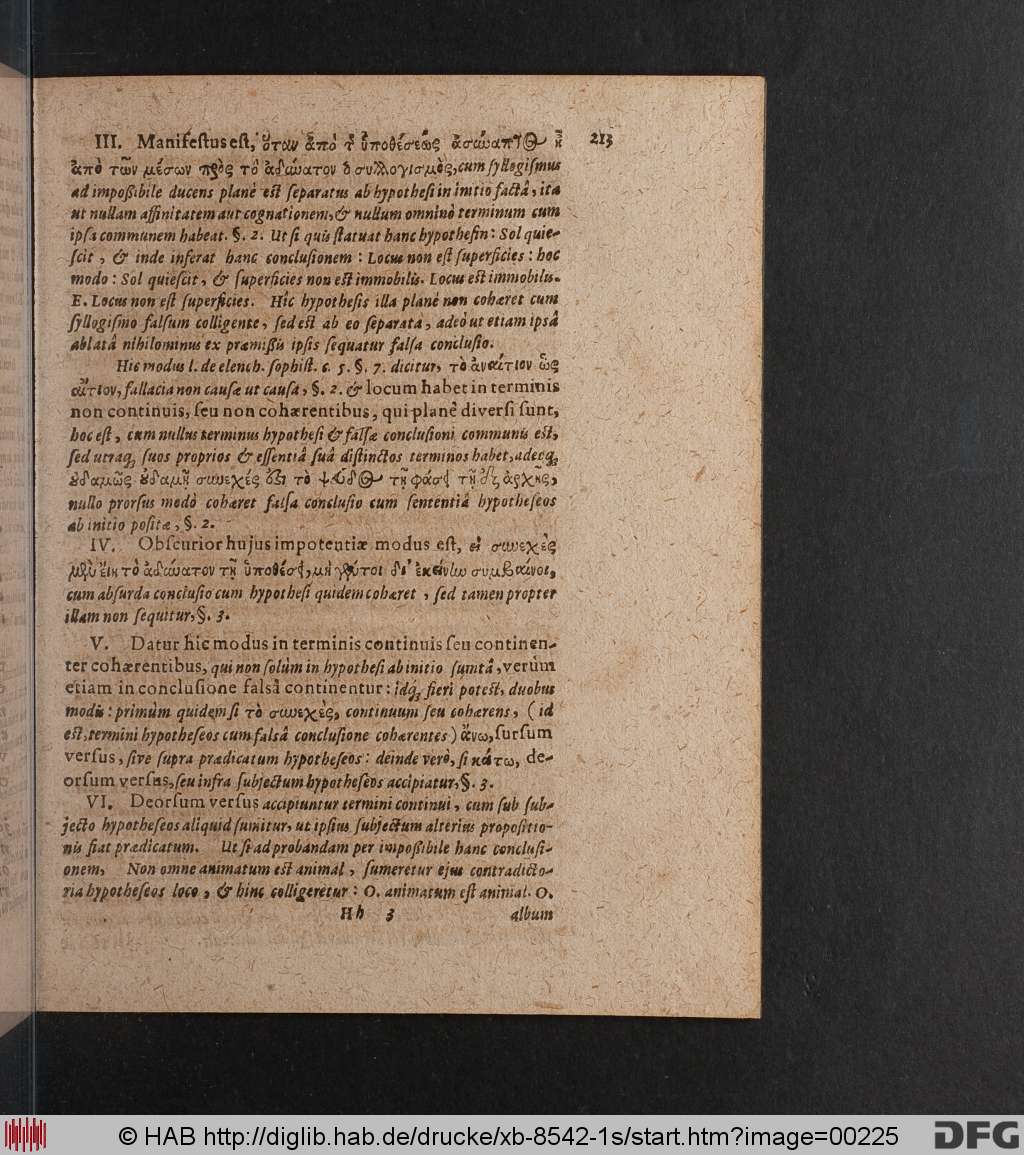 213
III. Manifeſtus eſt, ὅταν ἀπὸ τ̃ ὑποθέσεως ἀσύναπτος ᾖ
ἀπὸ τῶν μέσων πρὸς τὸ ἀδύνατον ὁ συλλογισμὸς, cum ſyllogiſmus
ad impoßibile ducens planè est ſeparatus ab hypotheſi in initio factâ, ita
ut nullam affinitatem aut cognationem, & nullum omninò terminum cum
ipſa communem habeat. §. 2. Ut ſi quis ſtatuat hanc hypotheſin: Sol quie-
ſcit, & inde inferat hanc concluſionem: Locus non eſt ſuperficies: hoc
modo: Sol quieſcit, & ſuperficies non est immobilis. Locus est immobilis.
E. Locus non eſt ſuperficies. Hîc hypotheſis illa planè non cohæret cum
ſyllogiſmo falſum colligente, ſed est ab eo ſeparata, adeò ut etiam ipsâ
ablatâ nihilominus ex præmißis ipſis ſequatur falſa concluſio.
Hic modus l. de elench. ſophiſt. c. 5. §. 7. dicitur, τὸ ἀναίτιον ὡς
αἴτιον, fallacia non cauſæ ut cauſa, §. 2. & locum habet in terminis
non continuis, ſeu non cohærentibus, qui planè diverſi ſunt,
hoc eſt, cum nullus terminus hypotheſi & falſæ concluſioni communis est,
ſed utraq; ſuos proprios & eſſentiâ ſuâ diſtinctos terminos habet, adeoq;
ουδαμῶς ουδαμῆ συνεχές ὅξι τὸ ψεῦδος τῇ φάσει τῇ ἐξ ἀρχῆς,
nullo prorſus modò cohæret falſa concluſio cum ſententiâ hypotheſeos
ab initio poſitæ, §. 2.
IV. Obſcurior hujus impotentiæ modus eſt, εἰ συνεχὲς
μὲν εἴη τὸ ἀδύνατον τῇ ὑποθέσει, μὴ γρ̃ τοι δι' ἐκείνην συμβαίνοι,
cum abſurda concluſio cum hypotheſi quidem cohæret, ſed tamen propter
illam non ſequitur, §. 3.
V. Datur hîc modus in terminis continuis ſeu continen-
ter cohærentibus, qui non ſolùm in hypotheſi ab initio ſumtâ, verùm
etiam in concluſione falsâ continentur: idq; fieri poteſt, duobus
modis: primùm quidem ſi τὸ συνεχὲς, continuum ſeu cohærens, (id
eſt, termini hypotheſeos cum falsâ concluſione cohærentes) ἄνω, ſurſum
verſus, ſive ſupra prædicatum hypotheſeos: deinde verò, ſi κάτω, de-
orſum verſus, ſeu infra ſubjectum hypotheſeos accipiatur, §. 3.
VI. Deorſum verſus accipiuntur termini continui, cum ſub ſub-
jecto hypotheſeos aliquid ſumitur, ut ipſius ſubjectum alterius propoſitio-
nis fiat prædicatum. Ut ſi ad probandam per impoßibile hanc concluſi-
onem, Non omne animatum est animal, ſumeretur ejus contradicto-
ria hypotheſeos loco, & hinc colligeretur: O. animatum eſt animal. O.
Hh 3 album
© HAB http://diglib.hab.de/drucke/xb-8542-1s/start.htm?image=00225 DFG